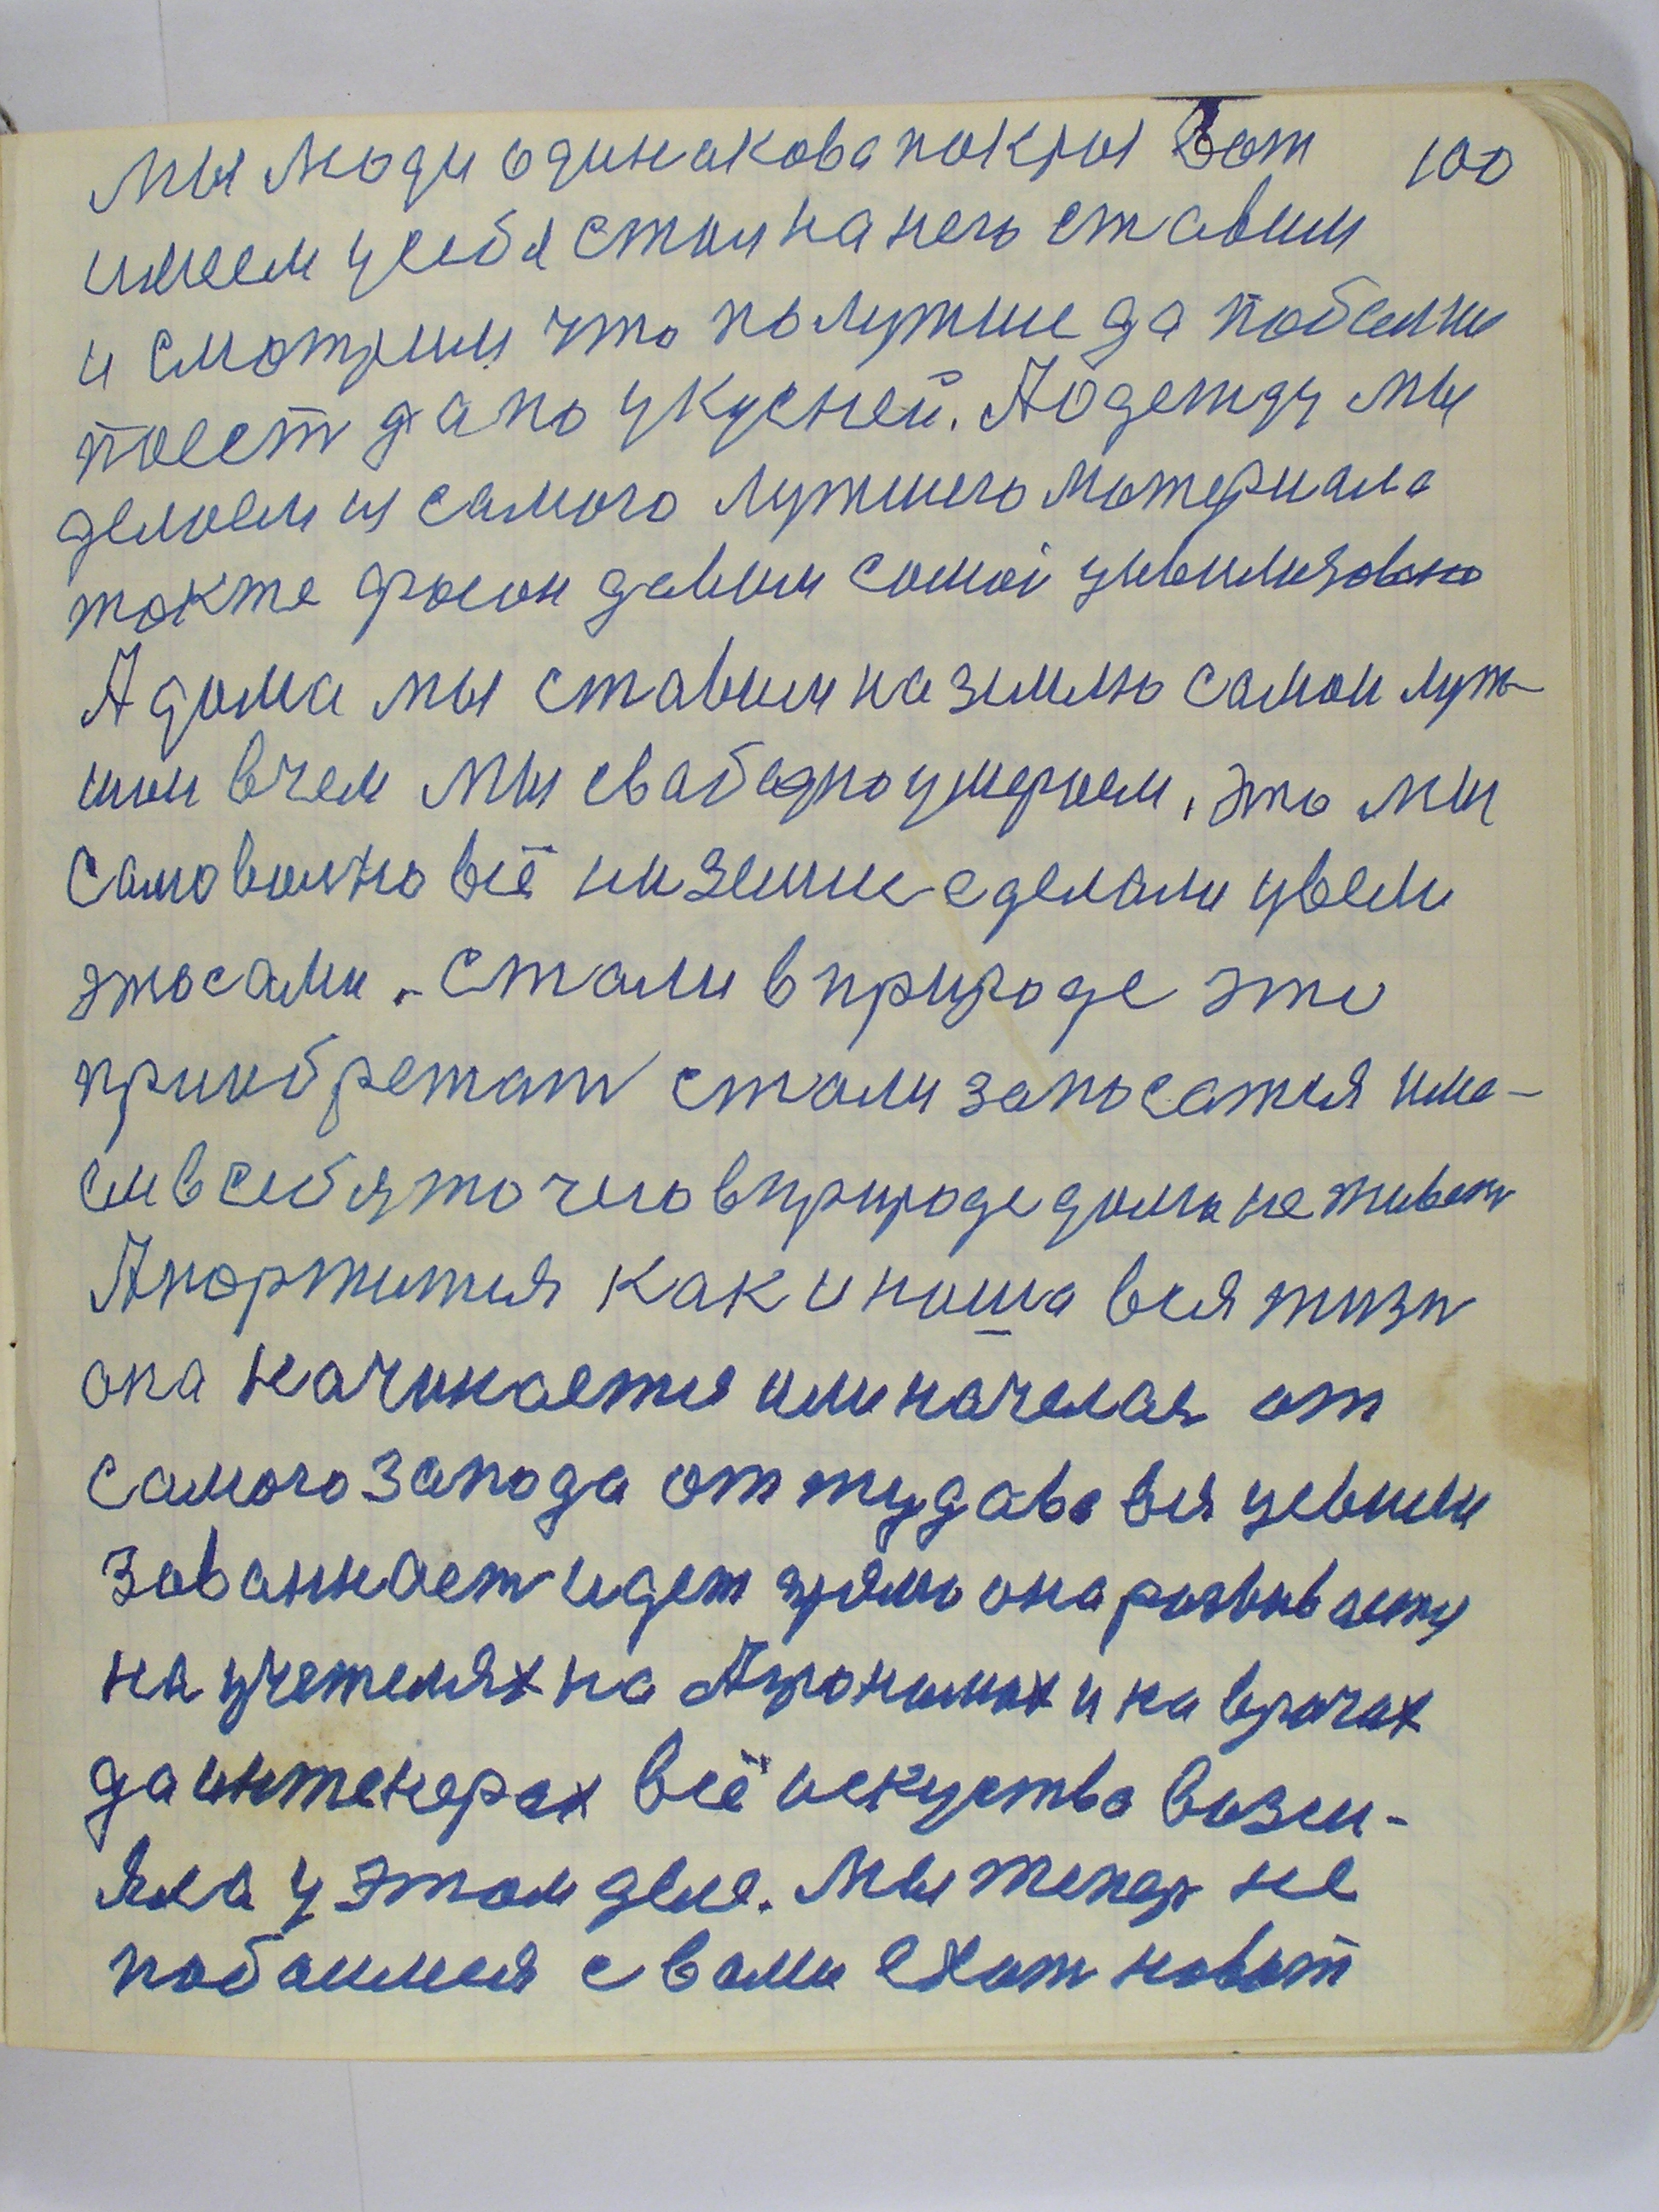 мы люди одинакова покры Вот 100
имеем у себя стол на него ставим
и смотрим что полутше да побольше
поест да по укусней. А одежду мы
делоем из самого лутшего материала
токже фасон давим самой
А дома мы ставим на землю самои лут-
шои в чем мы свабодно умераем, это мы
самовольно всё на земле сделали увели
это сами. Стали в природе это
приобретат стали запосатся име-
ем в себя то чего в природе долго не живет
А портится как и наша вся жизн
она начинается или началас от
самого запода от тудава вся цевили
зованнаст идет прямо она розвивается
на учетелях на Агрономах и на врачах
да интенерах всё искуства возси-
яла у этом деле. Мы тепер не
побоимся с вами ехат новст